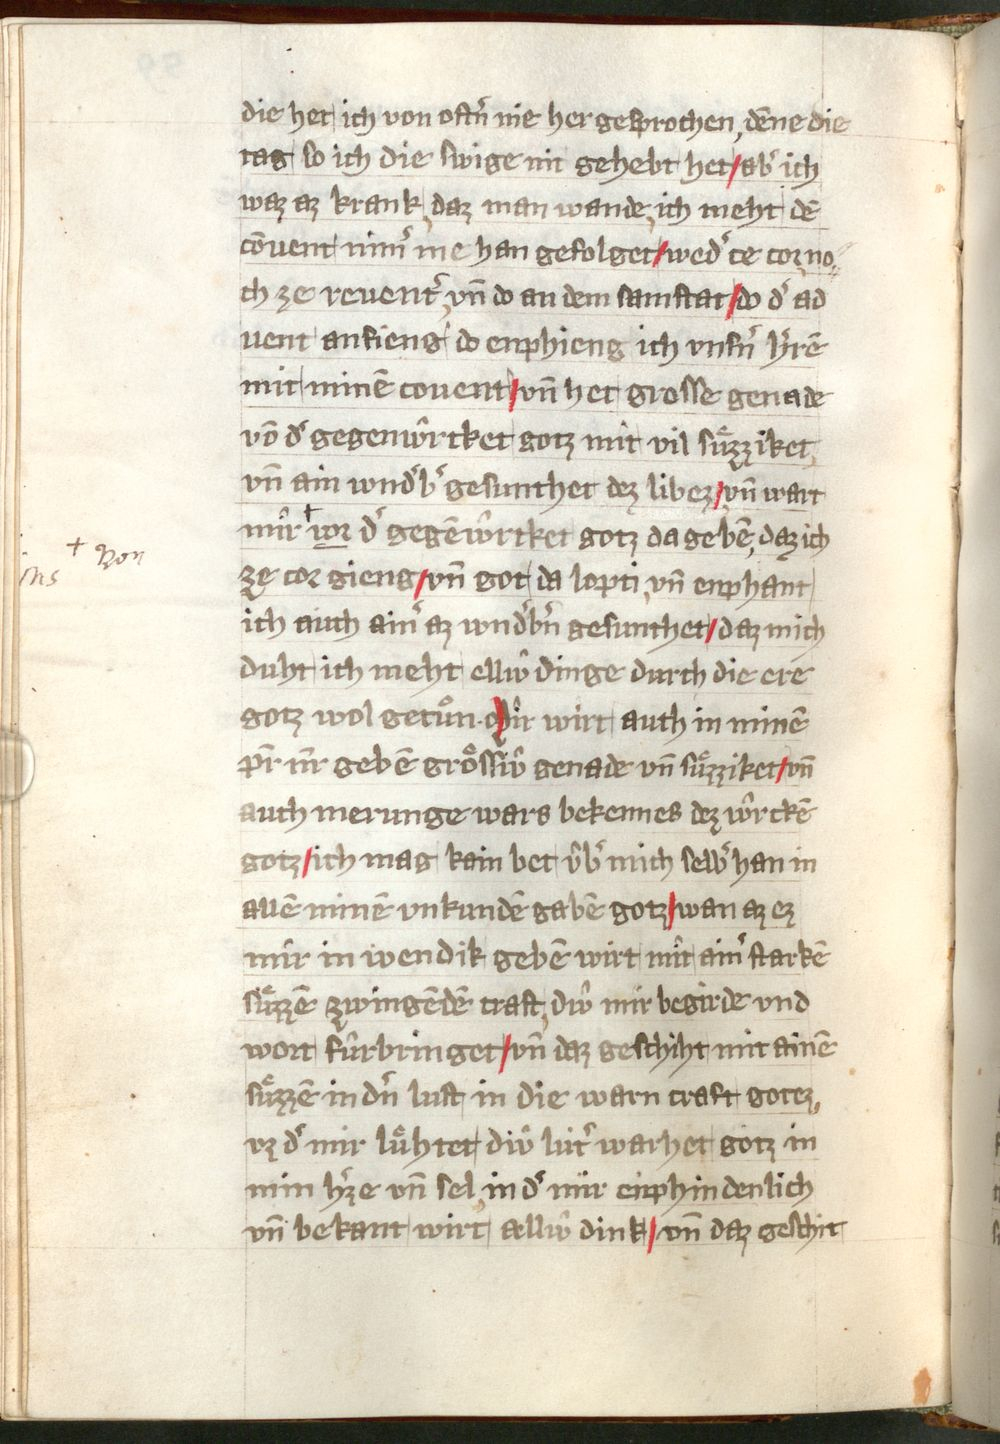 die het ich von ostn̄ nie her gesprochen, dēne die
tag so ich die swige nit gehebt het / ab͛ ich
waz az krank, daz man wande, ich meht dē
cōvent nim͛ me han gefolget / wed͛ ce cor, no⸗
ch ze revent͛, vn̄ do an dem samstat / do d͛ ad
vent anfieng do enphieng ich vnsn̄ h͛rē
mit minē covent / vn̄ het grosse genade
vō d͛ gegenwr̂tket gotz mit vil sűzziket,
vn̄ ain wnd͛b͛ gesunthet dez libez / vn̄ wart
mir + vor d͛ gegēwr̂tket gotz da gebē, daz ich
+ von
ze cor gieng / vn̄ got da lopti, vn̄ enphant
ich auch ain͛ az wnd͛bn̄ gesunthet / daz mich
duht ich meht ellŵ dinge durch die ere
gotz wol getůn. Mir wirt auch in minē
pr̄ nr̄ gebē grőssiŵ genade vn̄ sűzziket / vn̄
auch merunge wars bekennes dez wr̂ckē
gotz / ich mag kain bet v̂b͛ mich selb͛ han in
allē minē vnkundē gabē gotz / wan az ez
mir in wendik gebē wirt mit ain͛ starkē
sűzzē zwingēdē craft, diŵ mir begirde vnd
wort fûrbringet / vn̄ daz geschiht mit ainē
sűzzē indn̄ lust in die warn craft gotez,
vz d͛ mir lűhtet diŵ lut͛ warhet gotz in
min h͛ze vn̄ sel, in d͛ mir enphindenlich
vn̄ bekant wirt ellŵ dink / vn̄ daz geschit